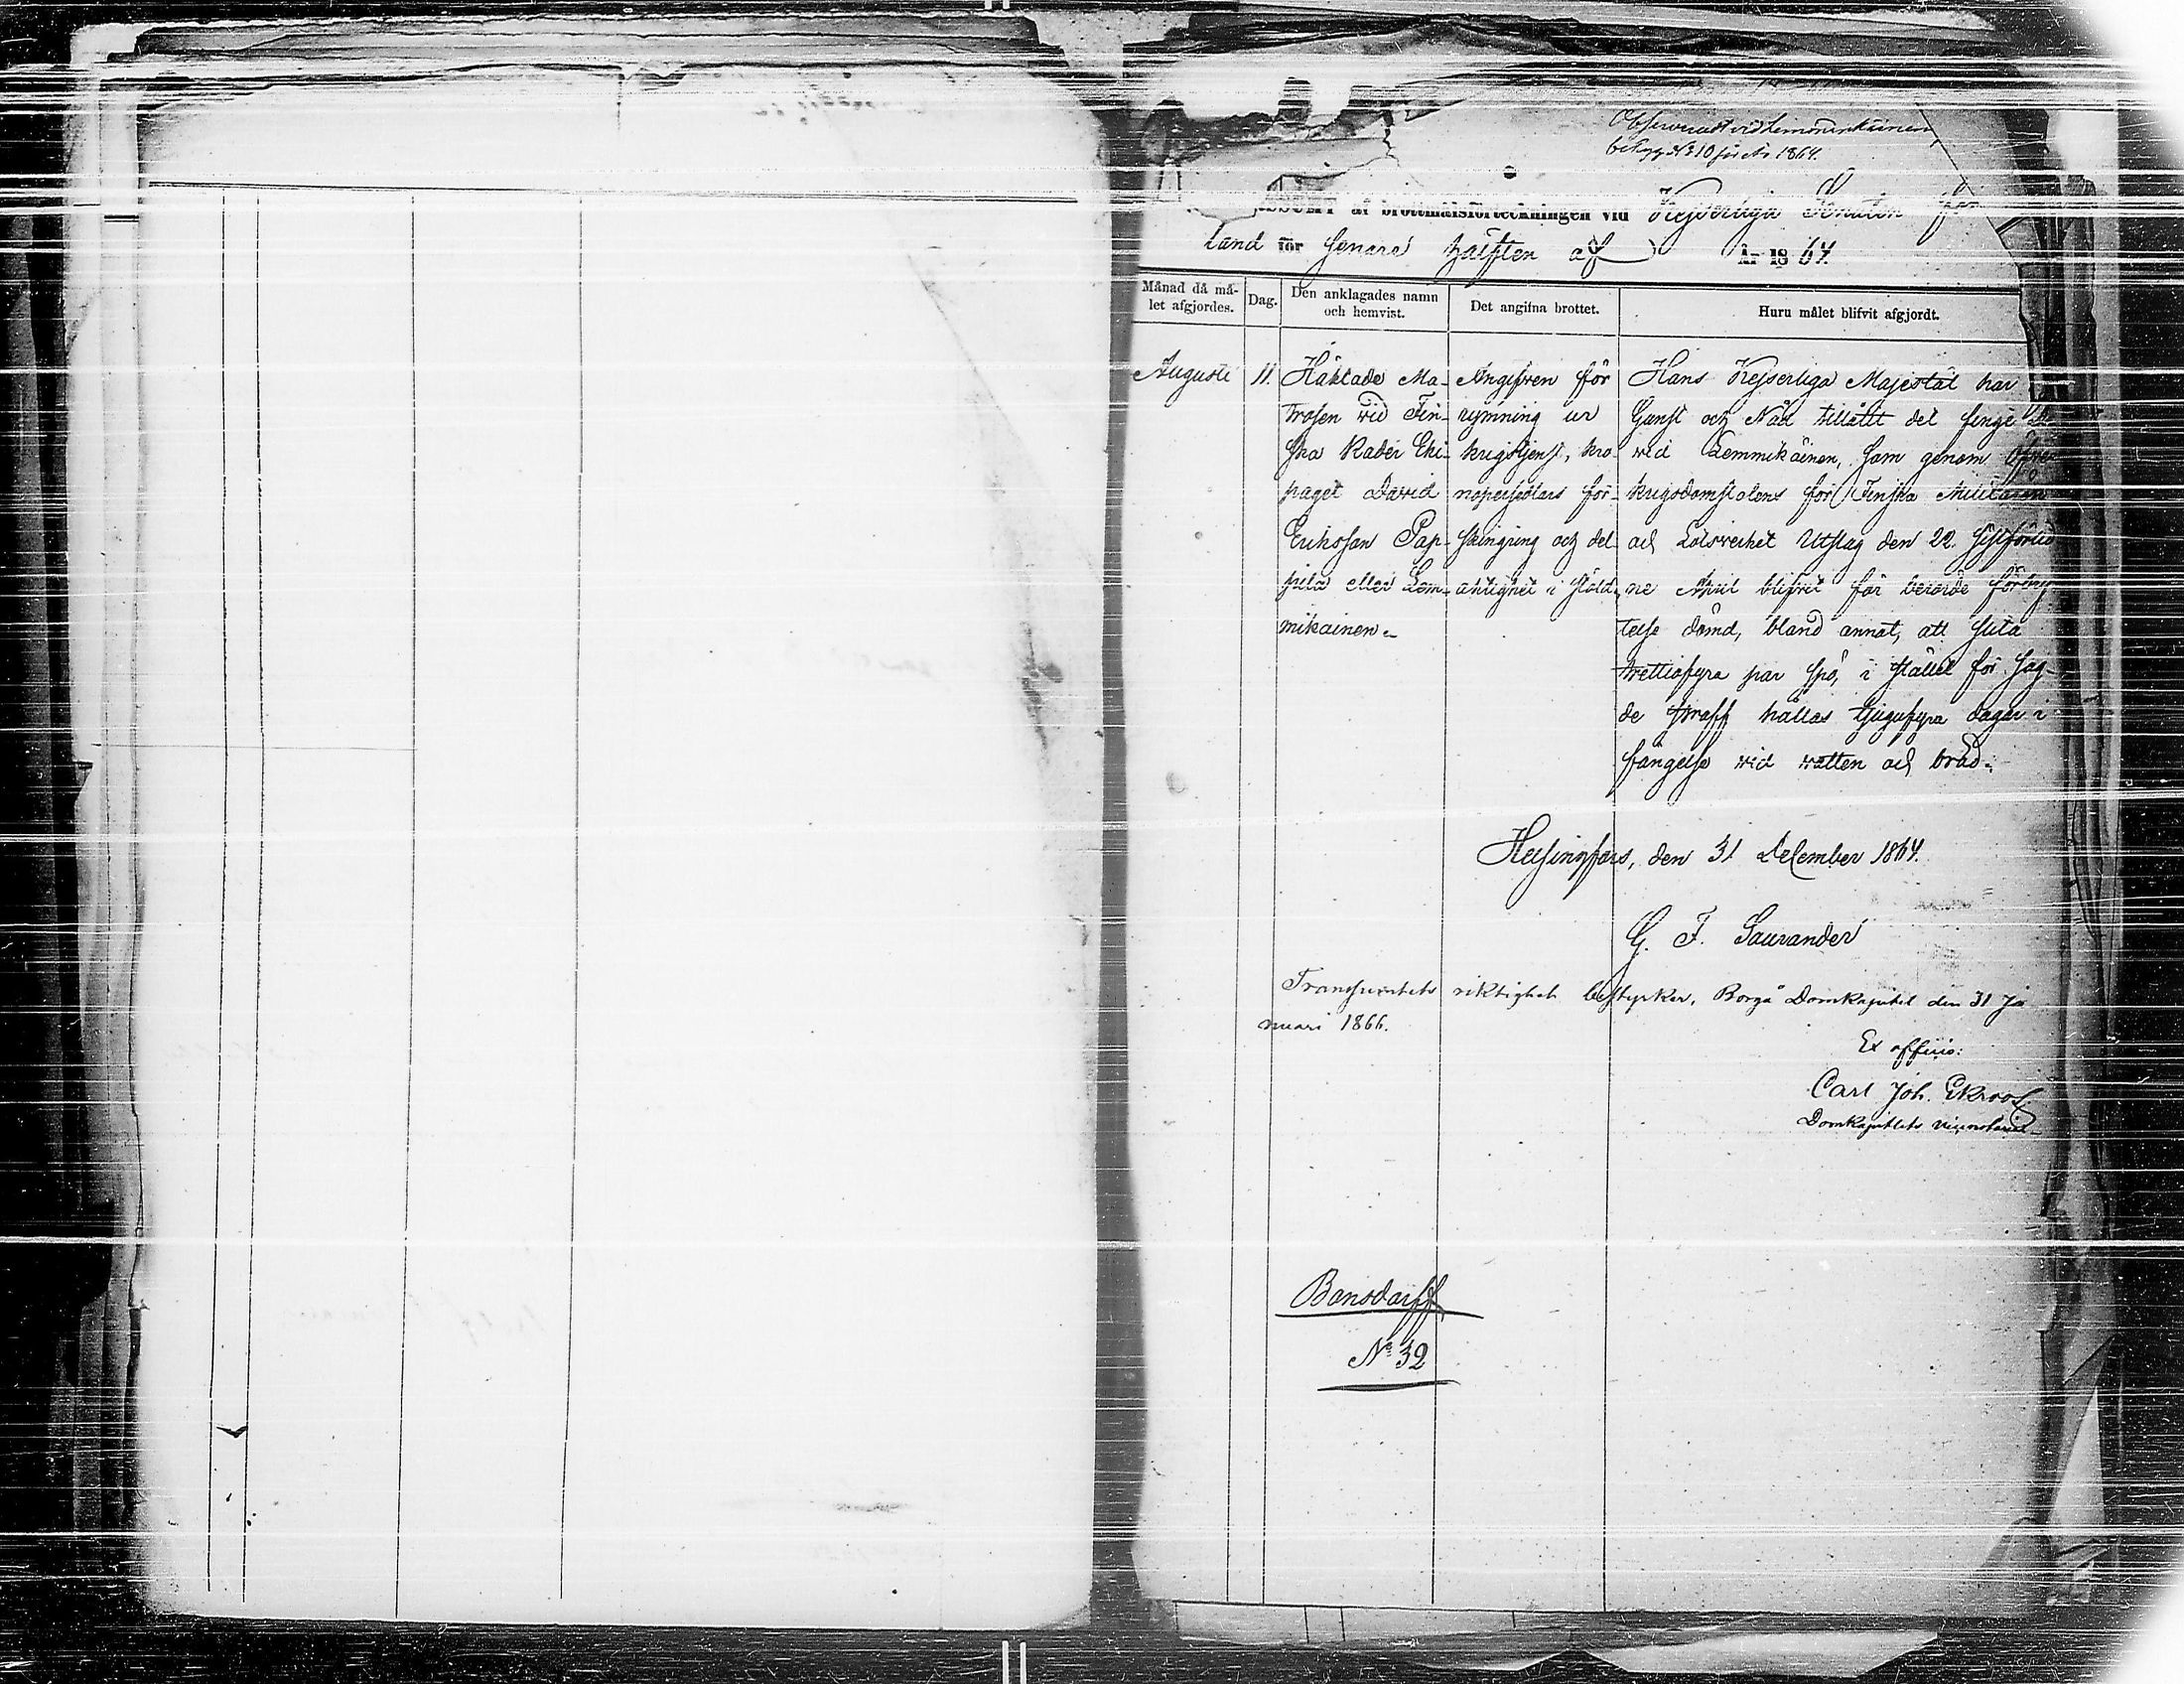 Observeradt vid Lemminkäinen
betyg № 10 för år 1864.
af brottmålsförteckningen vid Kejserliga Senaten för
land för senare hälften af År 1864.
Månad då målet afgjordes.
Dag.
Den anklagades namn och hemvist.
Det angifna brottet.
Huru målet blifvit afgjordt.
Augusti
11.
Häktade Ma-
trosen vid Fin-
ska Kader Eki-
paget David
Eriksson Pap-
pila eller Lem-
mikainen.
Angifven för
rymning ur
krigstjenst, kro-
nopersedlars för-
skingring och del-
aktighet i stöld.
Hans Kejserliga Majestät har
Gunst och Nåd tillåtit det
vid Lemmikäinen, som genom Öfver
krigsdomstolens för Finska Militären
och Lotsverket Utslag den 22. sistförlid
ne April blifvit för berörde förbry
telse dömd, bland annat, att slita
trettiofyra par spö, i stället för sag-
de straff hållas tjugufyra dagar i
fängelse vid vatten och bröd.
Helsingfors, den 31 December 1864.
G. F.
Transsumtets riktighet bestyrker, Borgå Domkapitel den 31 Ja
nuari 1866.
Ex officio:
Carl Joh. Ekroos
Domkapitlets vicenotarie
Bonsdorff
№ 32